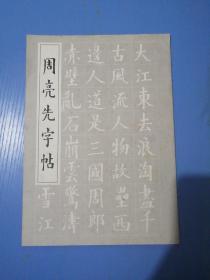 大江東去浪淘盡千
古風流人物故壘西
邊人道是三國周郎
赤壁亂石崩雲驚濤
雪江
周亮先字帖